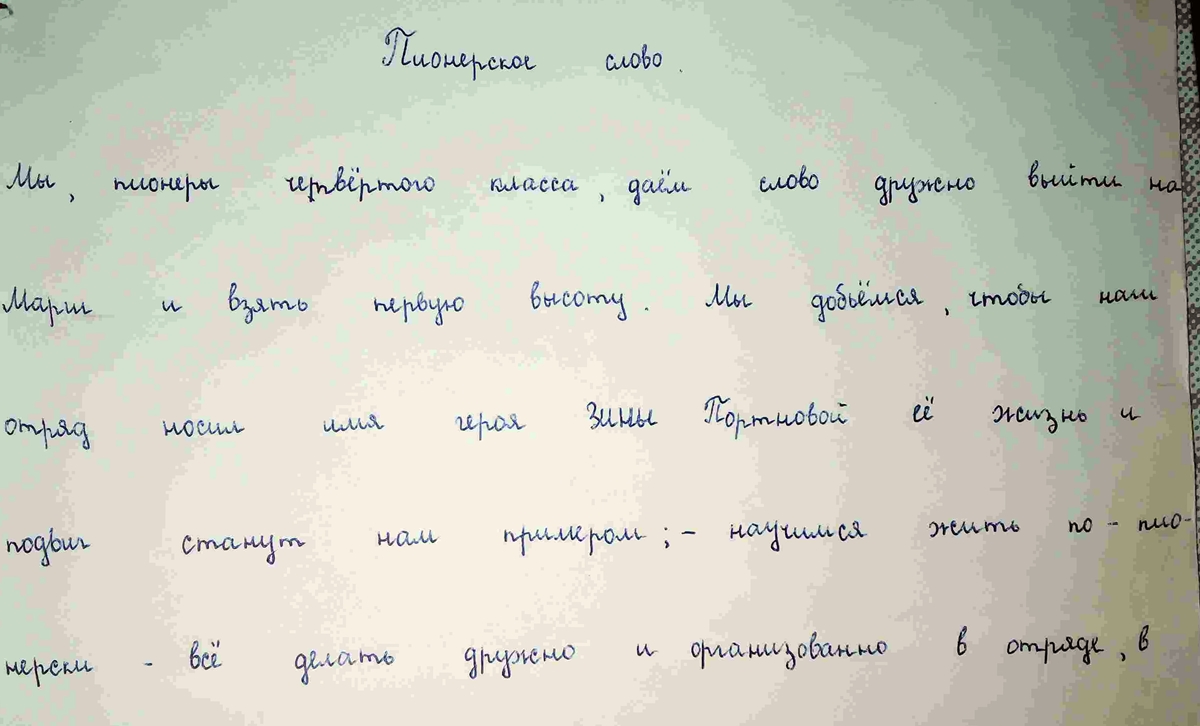 Пионерское слово.
Мы, пионеры четвёртого класса, даём слово дружно выйти на
Марш и взять первую высоту. Мы добьёмся, чтобы наш
отряд носил имя героя Зины Портновой её жизнь и
подвиг станут нам примером; - научимся жить по - пио-
нерски - всё делать дружно и организованно в отряде, в